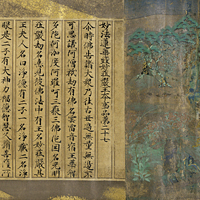 妙法蓮華經妙莊嚴王本事品第二十七
爾時佛告諸大眾乃往古世過無量無邊不
可思議阿僧祇劫有佛名雲雷音宿王華智
多陀阿伽度阿羅訶三藐三佛陀國名光明
莊嚴劫名憙見彼佛法中有王名妙莊嚴其
王夫人名曰淨德有二子一名淨藏二名淨
眼是二子有大神力福德智慧久修菩薩所